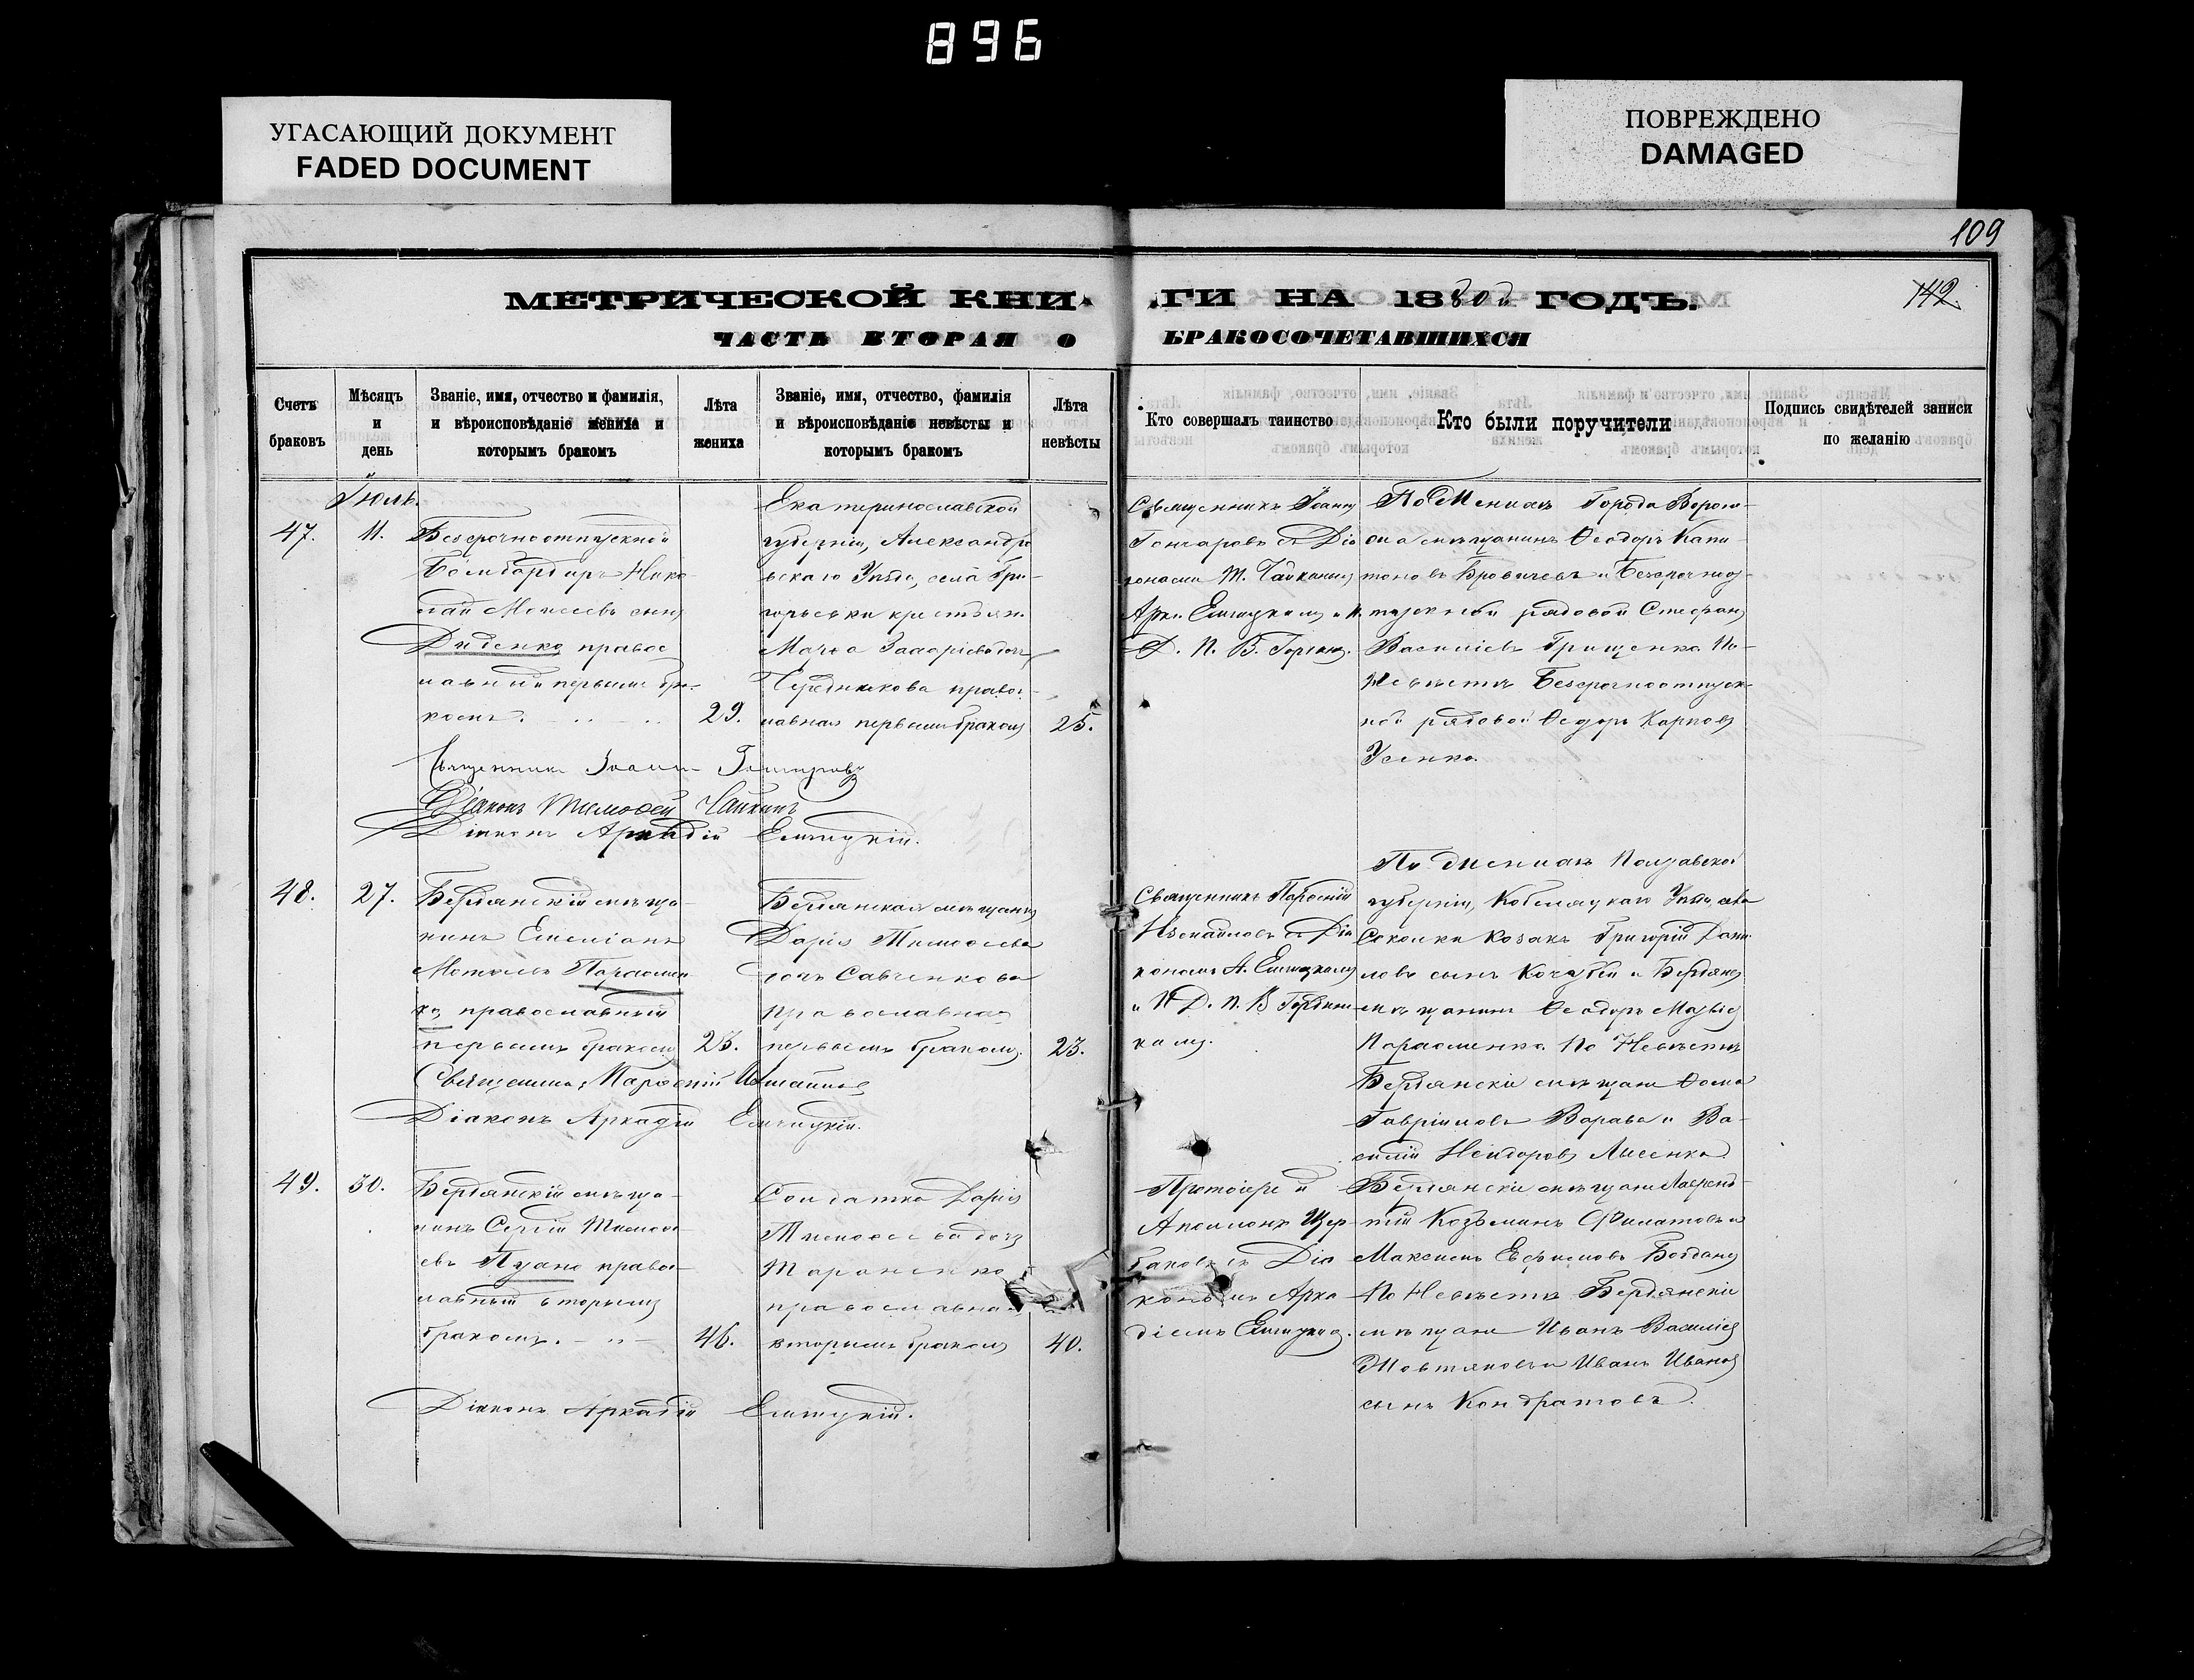 896
УГАСАЮЩИЙ ДОКУМЕНТ
FADED DOCUMENT
ПОВРЕЖДЕНО
DAMAGED
109
142.
МЕТРИЧЕСКОЙ КНИ-
ГИ НА 1880й ГОДЪ.
ЧАСТЬ ВТОРАЯ О
БРАКОСОЧЕТАВШИХСЯ
Счетъ браковъ
Мѣсяцъ и день
Званіе, имя, отчество и фамилія, и вѣроисповѣданіе жениха и которымъ бракомъ
Лѣта жениха
Званіе, имя, отчество, фамилія и вѣроисповѣданіе невѣсты и которымъ бракомъ
Лѣта невѣсты
Кто совершалъ таинство
Кто были поручители
Подпись свидѣтелей записи по желанію
Іюль.
47.
11.
Безсрочноотпускной
Бомбардиръ Нико-
лай Моисеевъ сынъ
Диденко правос-
лавный первымъ бра-
комъ.
29.
Екатеринославской
губерніи, Александро
вскаго Уѣзда, села Гри-
горьевки крестьян.
Захаріева дочь
Чередникова правос-
лавная первымъ бракомъ
25.
Священникъ Іоаннъ
Гончаровъ съ Діа
кономъ Т. Чайкинымъ
Арк. Елчицкимъ и И.
Д. П. В. 
По Женихѣ Города
мѣщанинъ Ѳеодоръ Капи
тоновъ и Безсрочноот-
пускной рядовой Стефанъ
Василіевъ Грищенко По
Невѣстѣ Безсрочноотпуск-
ной рядовой Ѳедоръ Карповъ
Усенко.
Священникъ Іоаннъ Гончаровъ
Діаконъ Тимоѳей Чайкинъ
Діаконъ Аркадій Елчицкій.
48.
27.
Бердянскій мѣща-
нинъ Емеліанъ
Парѳомен
ко, православный
первымъ бракомъ
23.
Бердянская мѣщанка
Дарія Тимоѳеева
дочь Савченкова
православная
первымъ бракомъ.
23.
Священникъ Парѳеній
Измайловъ съ Діа
кономъ А. Елчицкимъ
и И. Д. П. В.
кимъ.
По Женихѣ Полтавской
губерніи, Кобеляцкаго Уѣзда, села
Соколки Козакъ Григорій Дани
ловъ сынъ Кочубей и Бердянс.
мѣщанинъ Ѳеодоръ
Парѳоменко. По Невѣстѣ
Бердянскіе мѣщане Ѳома
Гавріиловъ Варава и Ва-
силій Лисенко
Священникъ Парѳеній Измайловъ
Діаконъ Аркадій Елчицкій.
49.
30.
Бердянскій мѣща-
нинъ Сергій Тимоѳе
евъ правос-
лавный вторымъ
бракомъ.
46.
Солдатка Дарія
Тимоѳеева дочь
Тараненко
православна
вторымъ бракомъ
40.
Протоіерей
Аполлонъ Щер-
баковъ съ Діа
кономъ Арка
діемъ Елчицкимъ.
Бердянскіе мѣщане
Козьминъ Филатовъ и
Максимъ Ефимовъ
По Невѣстѣ Бердянскіе
мѣщане Иванъ Василіевъ
и Иванъ Ивановъ
сынъ Кондратовъ.
Діаконъ Аркадій Елчицкій.